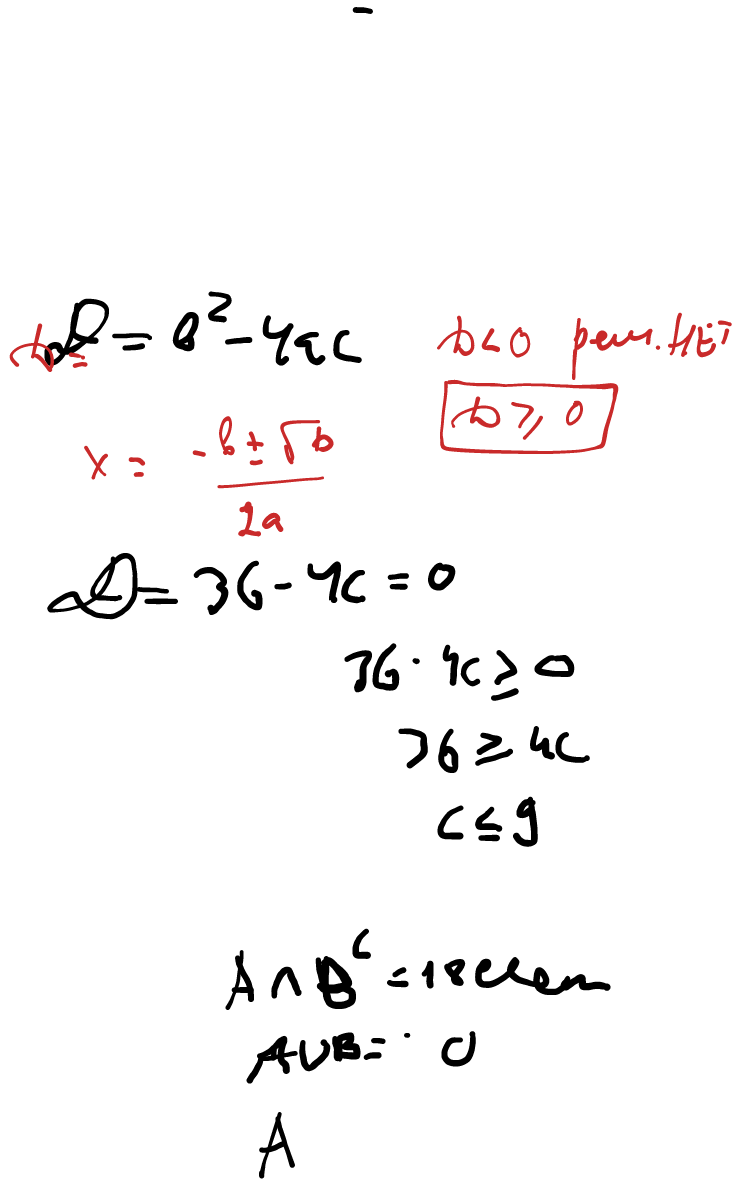 D = b² - 4ac
D < 0 реш. НЕТ
D ⩾ 0
x = -b ± √D / 2a
D = 36 - 4c = 0
36 - 4c ≥ 0
36 ≥ 4c
c ≤ 9
A ∩ B^c = 18 elem
A ∪ B =
A